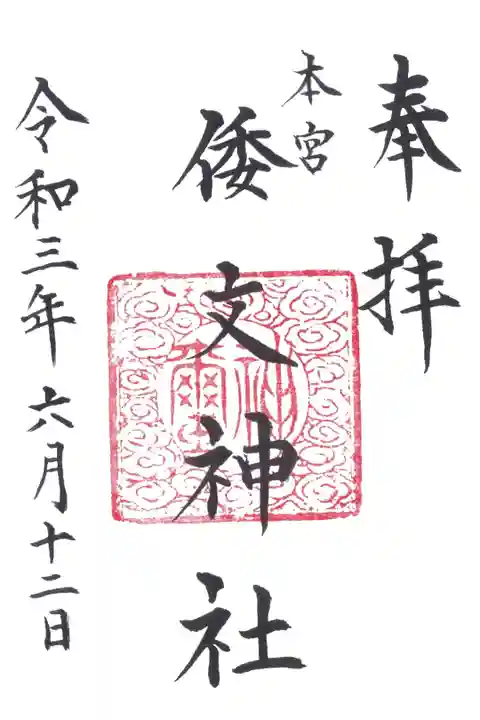 奉拝
本宮
倭文神社
神璽
令和三年六月十二日